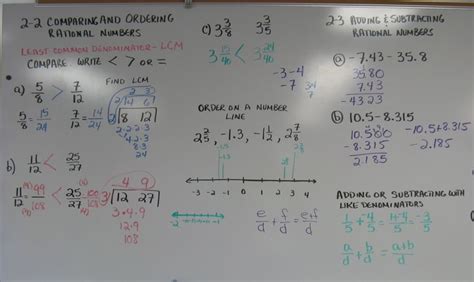 2-2 COMPARING AND ORDERING
RATIONAL NUMBERS
LEAST COMMON DENOMINATOR - LCM
COMPARE. WRITE < > OR =
FIND LCM
a) 5/8 > 7/12
5/8 = 15/24 7/12 = 14/24
8 12
2·2·2·3
4·2·3
8·3
24
b) 11/12 < 25/27
11/12 = 99/108 < 25/27 = 100/108
4 9
3 12 27
3·4·9
12·9
108
c) 3 3/8 3 3/5
3 15/40 < 3 24/40
-3-4
-7
ORDER ON A NUMBER
LINE
2 2/5, -1.3, -1 1/2, 2 7/8
-3 -2 -1 0 1 2 3 4
e/d + f/d = e+f/d
2-3 ADDING & SUBTRACTING
RATIONAL NUMBERS
a) -7.43 - 35.8
35.80
7.43
-43.23
b) 10.5 - 8.315
10.500
- 8.315
2.185
-10.5+8.315
-2.185
ADDING OR SUBTRACTING WITH
LIKE DENOMINATORS
1/5 + -4/5 = 1+-4/5 = -3/5
a/d + b/d = a+b/d